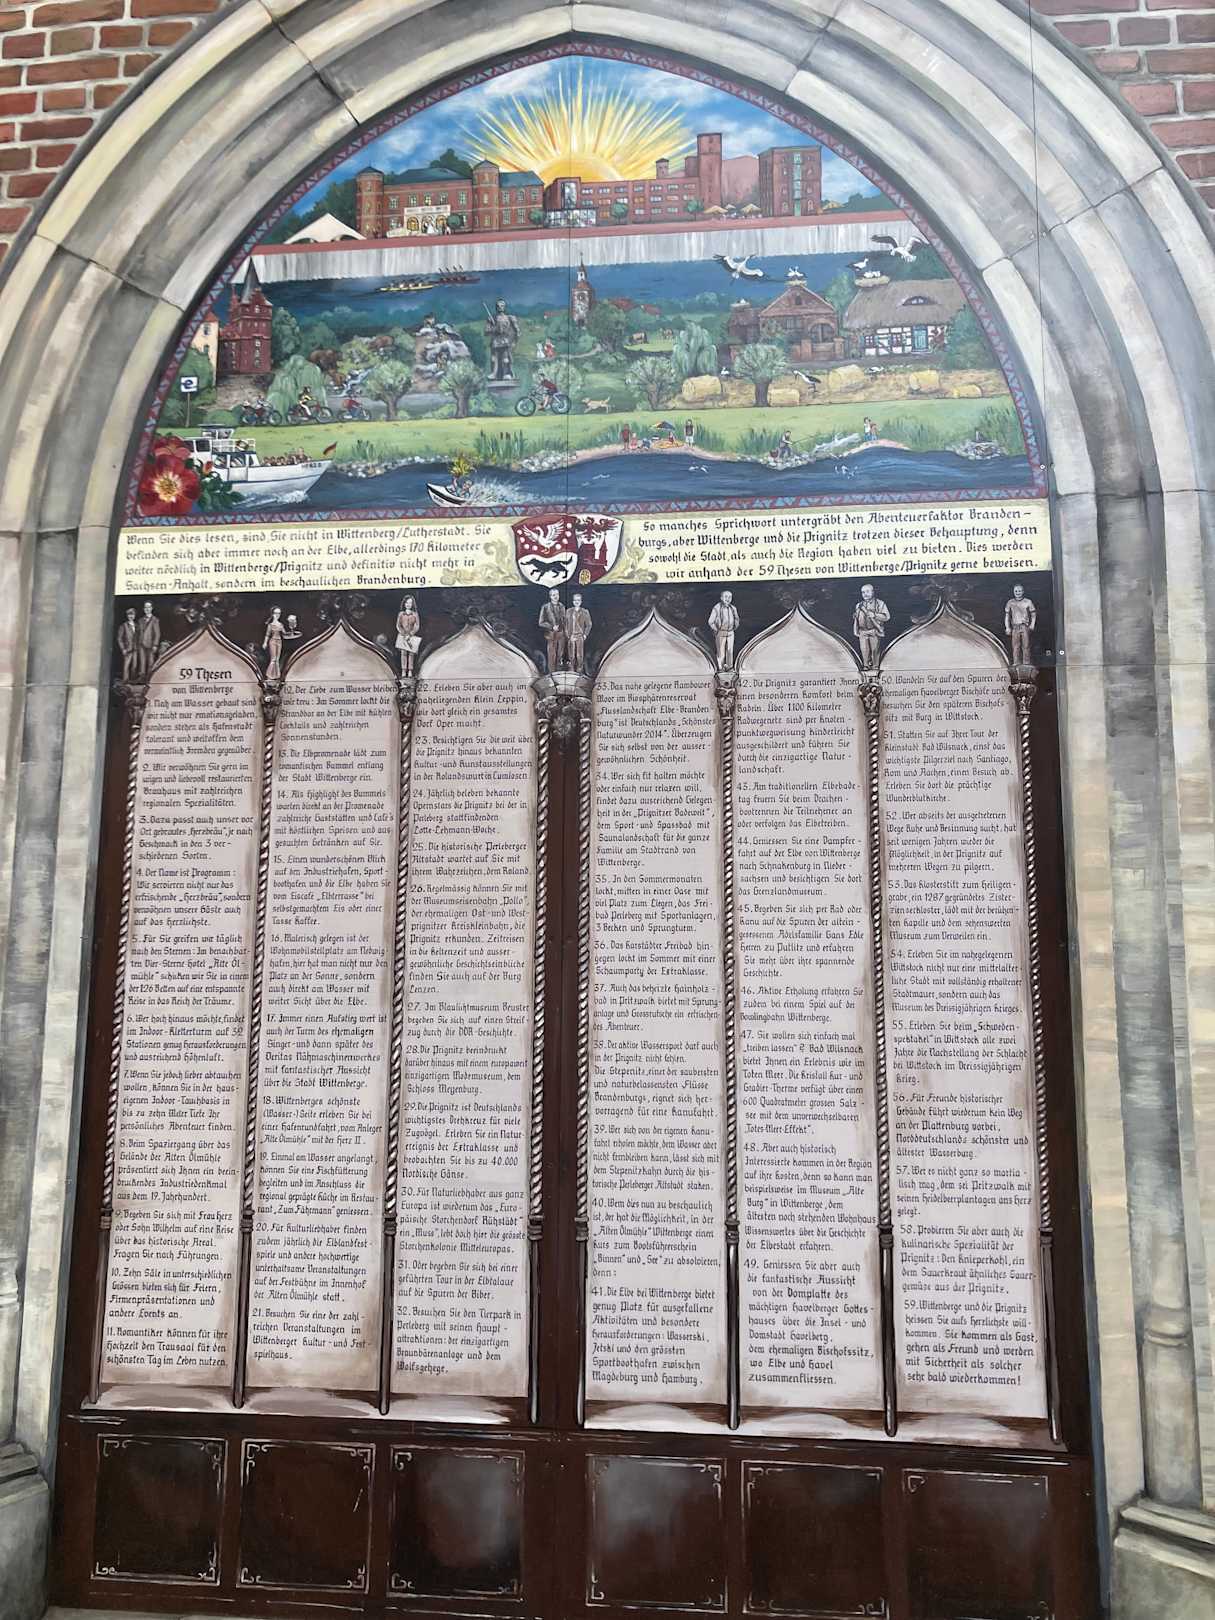 Wenn Sie dies lesen, sind Sie nicht in Wittenberg/Lutherstadt. Sie
befinden sich aber immer noch an der Elbe, allerdings 170 Kilometer
weiter nördlich in Wittenberge/Prignitz und definitiv nicht mehr in
Sachsen-Anhalt, sondern im beschaulichen Brandenburg.
So manches Sprichwort untergräbt den Abenteuerfaktor Branden-
burgs, aber Wittenberge und die Prignitz trotzen dieser Behauptung, denn
sowohl die Stadt, als auch die Region haben viel zu bieten. Dies werden
wir anhand der 59 Thesen von Wittenberge/Prignitz gerne beweisen.
59 Thesen
von Wittenberge
1. Nah am Wasser gebaut sind
wir nicht nur emotionsgeladen,
sondern stehen als Hafenstadt
tolerant und weltoffen dem
vermeintlich Fremden gegenüber.
2. Wir verwöhnen Sie gern im
urigen und liebevoll restaurierten
Brauhaus mit zahlreichen
regionalen Spezialitäten.
3. Dazu passt auch unser vor
Ort gebrautes „Herzbräu", je nach
Geschmack in den 3 ver-
schiedenen Sorten.
4. Der Name ist Programm:
Wir servieren nicht nur das
erfrischende „Herzbräu", sondern
verwöhnen unsere Gäste auch
auf das herzlichste.
5. Für Sie greifen wir täglich
nach den Sternen: Im benachbar-
ten Vier-Sterne Hotel „Alte Öl-
mühle" schicken wir Sie in einem
der 126 Betten auf eine entspannte
Reise in das Reich der Träume.
6. Wer hoch hinaus möchte, findet
im Indoor-Kletterturm auf 32
Stationen genug Herausforderungen
und ausreichend Höhenluft.
7. Wenn Sie jedoch lieber abtauchen
wollen, können Sie in der haus-
eigenen Indoor-Tauchbasis in
bis zu zehn Meter Tiefe Ihr
persönliches Abenteuer finden.
8. Beim Spaziergang über das
Gelände der Alten Ölmühle
präsentiert sich Ihnen ein beein-
druckendes Industriedenkmal
aus dem 19. Jahrhundert.
9. Begeben Sie sich mit Frau Herz
oder Sohn Wilhelm auf eine Reise
über das historische Areal.
Fragen Sie nach Führungen.
10. Zehn Säle in unterschiedlichen
Grössen bieten sich für Feiern,
Firmenpräsentationen und
andere Events an.
11. Romantiker können für ihre
Hochzeit den Trausaal für den
schönsten Tag im Leben nutzen.
12. Der Liebe zum Wasser bleiben
wir treu: Im Sommer lockt die
Strandbar an der Elbe mit kühlen
Cocktails und zahlreichen
Sonnenstunden.
13. Die Elbpromenade lädt zum
romantischen Bummel entlang
der Stadt Wittenberge ein.
14. Als Highlight des Bummels
warten direkt an der Promenade
zahlreiche Gaststätten und Café's
mit köstlichen Speisen und aus-
gesuchten Getränken auf Sie.
15. Einen wunderschönen Blick
auf den Industriehafen, Sport-
boothafen und die Elbe haben Sie
vom Eiscafé „Elbterrasse" bei
selbstgemachtem Eis oder einer
Tasse Kaffee.
16. Malerisch gelegen ist der
Wohnmobilstellplatz am Nedwig-
hafen, hier hat man nicht nur den
Platz an der Sonne, sondern
auch direkt am Wasser mit
weiter Sicht über die Elbe.
17. Immer einen Aufstieg wert ist
auch der Turm des ehemaligen
Singer- und dann später des
Veritas Nähmaschinenwerkes
mit fantastischer Aussicht
über die Stadt Wittenberge.
18. Wittenberges schönste
(Wasser-)Seite erleben Sie bei
einer Hafenrundfahrt, vom Anleger
„Alte Ölmühle" mit der Herz II.
19. Einmal am Wasser angelangt,
können Sie eine Fischfütterung
begleiten und im Anschluss die
regional geprägte Küche im Restau-
rant „Zum Fährmann" geniessen.
20. Für Kulturliebhaber finden
zudem jährlich die Elblandfest-
spiele und andere hochwertige
unterhaltsame Veranstaltungen
auf der Festbühne im Innenhof
der Alten Ölmühle statt.
21. Besuchen Sie eine der zahl-
reichen Veranstaltungen im
Wittenberger Kultur- und Fest-
spielhaus.
22. Erleben Sie aber auch im
naheliegenden Klein Leppin,
wie dort gleich ein gesamtes
Dorf Oper macht.
23. Besichtigen Sie die weit über
die Prignitz hinaus bekannten
Kultur- und Kunstausstellungen
in der Rolandswurt in Cumlosen.
24. Jährlich beleben bekannte
Opernstars die Prignitz bei der in
Perleberg stattfindenden
Lotte-Lehmann-Woche.
25. Die historische Perleberger
Altstadt wartet auf Sie mit
ihrem Wahrzeichen, dem Roland.
26. Regelmässig können Sie mit
der Museumseisenbahn „Pollo",
der ehemaligen Ost- und West-
prignitzer Kreiskleinbahn, die
Prignitz erkunden. Zeitreisen
in die Keltenzeit und ausser-
gewöhnliche Geschichtseinblicke
finden Sie auch auf der Burg
Lenzen.
27. Im Blaulichtmuseum Beuster
begeben Sie sich auf einen Streif-
zug durch die DDR-Geschichte.
28. Die Prignitz beeindruckt
darüber hinaus mit einem europaweit
einzigartigen Modemuseum, dem
Schloss Meyenburg.
29. Die Prignitz ist Deutschlands
wichtigstes Drehkreuz für viele
Zugvögel. Erleben Sie ein Natur-
ereignis der Extraklasse und
beobachten Sie bis zu 40.000
Nordische Gänse.
30. Für Naturliebhaber aus ganz
Europa ist wiederum das „Euro-
päische Storchendorf Rühstädt"
ein „Muss", lebt doch hier die grösste
Storchenkolonie Mitteleuropas.
31. Oder begeben Sie sich bei einer
geführten Tour in der Elbtalaue
auf die Spuren der Biber.
32. Besuchen Sie den Tierpark in
Perleberg mit seinen Haupt-
attraktionen: der einzigartigen
Braunbärenanlage und dem
Wolfsgehege.
33. Das nahe gelegene Rambower
Moor im Biosphärenreservat
„Flusslandschaft Elbe-Branden-
burg" ist Deutschlands „Schönstes
Naturwunder 2014". Überzeugen
Sie sich selbst von der ausser-
gewöhnlichen Schönheit.
34. Wer sich fit halten möchte
oder einfach nur relaxen will,
findet dazu ausreichend Gelegen-
heit in der „Prignitzer Badewelt",
dem Sport- und Spassbad mit
Saunalandschaft für die ganze
Familie am Stadtrand von
Wittenberge.
35. In den Sommermonaten
lockt, mitten in einer Oase mit
viel Platz zum Liegen, das Frei-
bad Perleberg mit Sportanlagen,
3 Becken und Sprungturm.
36. Das Karstädter Freibad hin-
gegen lockt im Sommer mit einer
Schaumparty der Extraklasse.
37. Auch das beheizte Hainholz-
bad in Pritzwalk bietet mit Sprung-
anlage und Grossrutsche ein erfrischen-
des Abenteuer.
38. Der aktive Wassersport darf auch
in der Prignitz nicht fehlen.
Die Stepenitz, einer der saubersten
und naturbelassensten Flüsse
Brandenburgs, eignet sich her-
vorragend für eine Kanufahrt.
39. Wer sich von der eigenen Kanu-
fahrt erholen möchte, dem Wasser aber
nicht fernbleiben kann, lässt sich mit
dem Stepenitzkahn durch die his-
torische Perleberger Altstadt staken.
40. Wem dies nun zu beschaulich
ist, der hat die Möglichkeit, in der
„Alten Ölmühle" Wittenberge einen
Kurs zum Bootsführerschein
„Binnen" und „See" zu absolvieren,
denn:
41. Die Elbe bei Wittenberge bietet
genug Platz für ausgefallene
Aktivitäten und besondere
Herausforderungen: Wasserski,
Jetski und den grössten
Sportboothafen zwischen
Magdeburg und Hamburg.
42. Die Prignitz garantiert Ihnen
einen besonderen Komfort beim
Radeln. Über 1100 Kilometer
Radwegenetz sind per Knoten-
punktwegweisung kinderleicht
ausgeschildert und führen Sie
durch die einzigartige Natur-
landschaft.
43. Am traditionellen Elbebade-
tag feuern Sie beim Drachen-
bootrennen die Teilnehmer an
oder verfolgen das Elbetreiben.
44. Geniessen Sie eine Dampfer-
fahrt auf der Elbe von Wittenberge
nach Schnakenburg in Nieder-
sachsen und besichtigen Sie dort
das Grenzlandmuseum.
45. Begeben Sie sich per Rad oder
Kanu auf die Spuren der altein-
gesessenen Adelsfamilie Gans Edle
Herren zu Putlitz und erfahren
Sie mehr über ihre spannende
Geschichte.
46. Aktive Erholung erfahren Sie
zudem bei einem Spiel auf der
Bowlingbahn Wittenberge.
47. Sie wollen sich einfach mal
„treiben lassen"? Bad Wilsnack
bietet Ihnen ein Erlebnis wie im
Toten Meer. Die Kristall Kur- und
Gradier-Therme verfügt über einen
600 Quadratmeter grossen Salz-
see mit dem unverwechselbaren
„Totes-Meer-Effekt".
48. Aber auch historisch
Interessierte kommen in der Region
auf ihre Kosten, denn so kann man
beispielsweise im Museum „Alte
Burg" in Wittenberge, dem
ältesten noch stehenden Wohnhaus
Wissenswertes über die Geschichte
der Elbestadt erfahren.
49. Geniessen Sie aber auch
die fantastische Aussicht
von der Domplatte des
mächtigen Havelberger Gottes-
hauses über die Insel- und
Domstadt Havelberg,
dem ehemaligen Bischofssitz,
wo Elbe und Havel
zusammenfliessen.
50. Wandeln Sie auf den Spuren der
ehemaligen Havelberger Bischöfe und
besuchen Sie den späteren Bischofs-
sitz mit Burg in Wittstock.
51. Statten Sie auf Ihrer Tour der
Kleinstadt Bad Wilsnack, einst das
wichtigste Pilgerziel nach Santiago,
Rom und Aachen, einen Besuch ab.
Erleben Sie dort die prächtige
Wunderblutkirche.
52. Wer abseits der ausgetretenen
Wege Ruhe und Besinnung sucht, hat
seit wenigen Jahren wieder die
Möglichkeit, in der Prignitz auf
mehreren Wegen zu pilgern.
53. Das Klosterstift zum Heiligen-
grabe, ein 1287 gegründetes Zister-
zienserkloster, lädt mit der berühm-
ten Kapelle und dem sehenswerten
Museum zum Verweilen ein.
54. Erleben Sie im nahegelegenen
Wittstock nicht nur eine mittelalter-
liche Stadt mit vollständig erhaltener
Stadtmauer, sondern auch das
Museum des Dreissigjährigen Krieges.
55. Erleben Sie beim „Schweden-
spektakel" in Wittstock alle zwei
Jahre die Nachstellung der Schlacht
bei Wittstock im Dreissigjährigen
Krieg.
56. Für Freunde historischer
Gebäude führt wiederum kein Weg
an der Plattenburg vorbei,
Norddeutschlands schönster und
ältester Wasserburg.
57. Wer es nicht ganz so martia-
lisch mag, dem sei Pritzwalk mit
seinen Heidelbeerplantagen ans Herz
gelegt.
58. Probieren Sie aber auch die
kulinarische Spezialität der
Prignitz: Den Knieperkohl, ein
dem Sauerkraut ähnliches Sauer-
gemüse aus der Prignitz.
59. Wittenberge und die Prignitz
heissen Sie aufs Herzlichste will-
kommen. Sie kommen als Gast,
gehen als Freund und werden
mit Sicherheit als solcher
sehr bald wiederkommen!